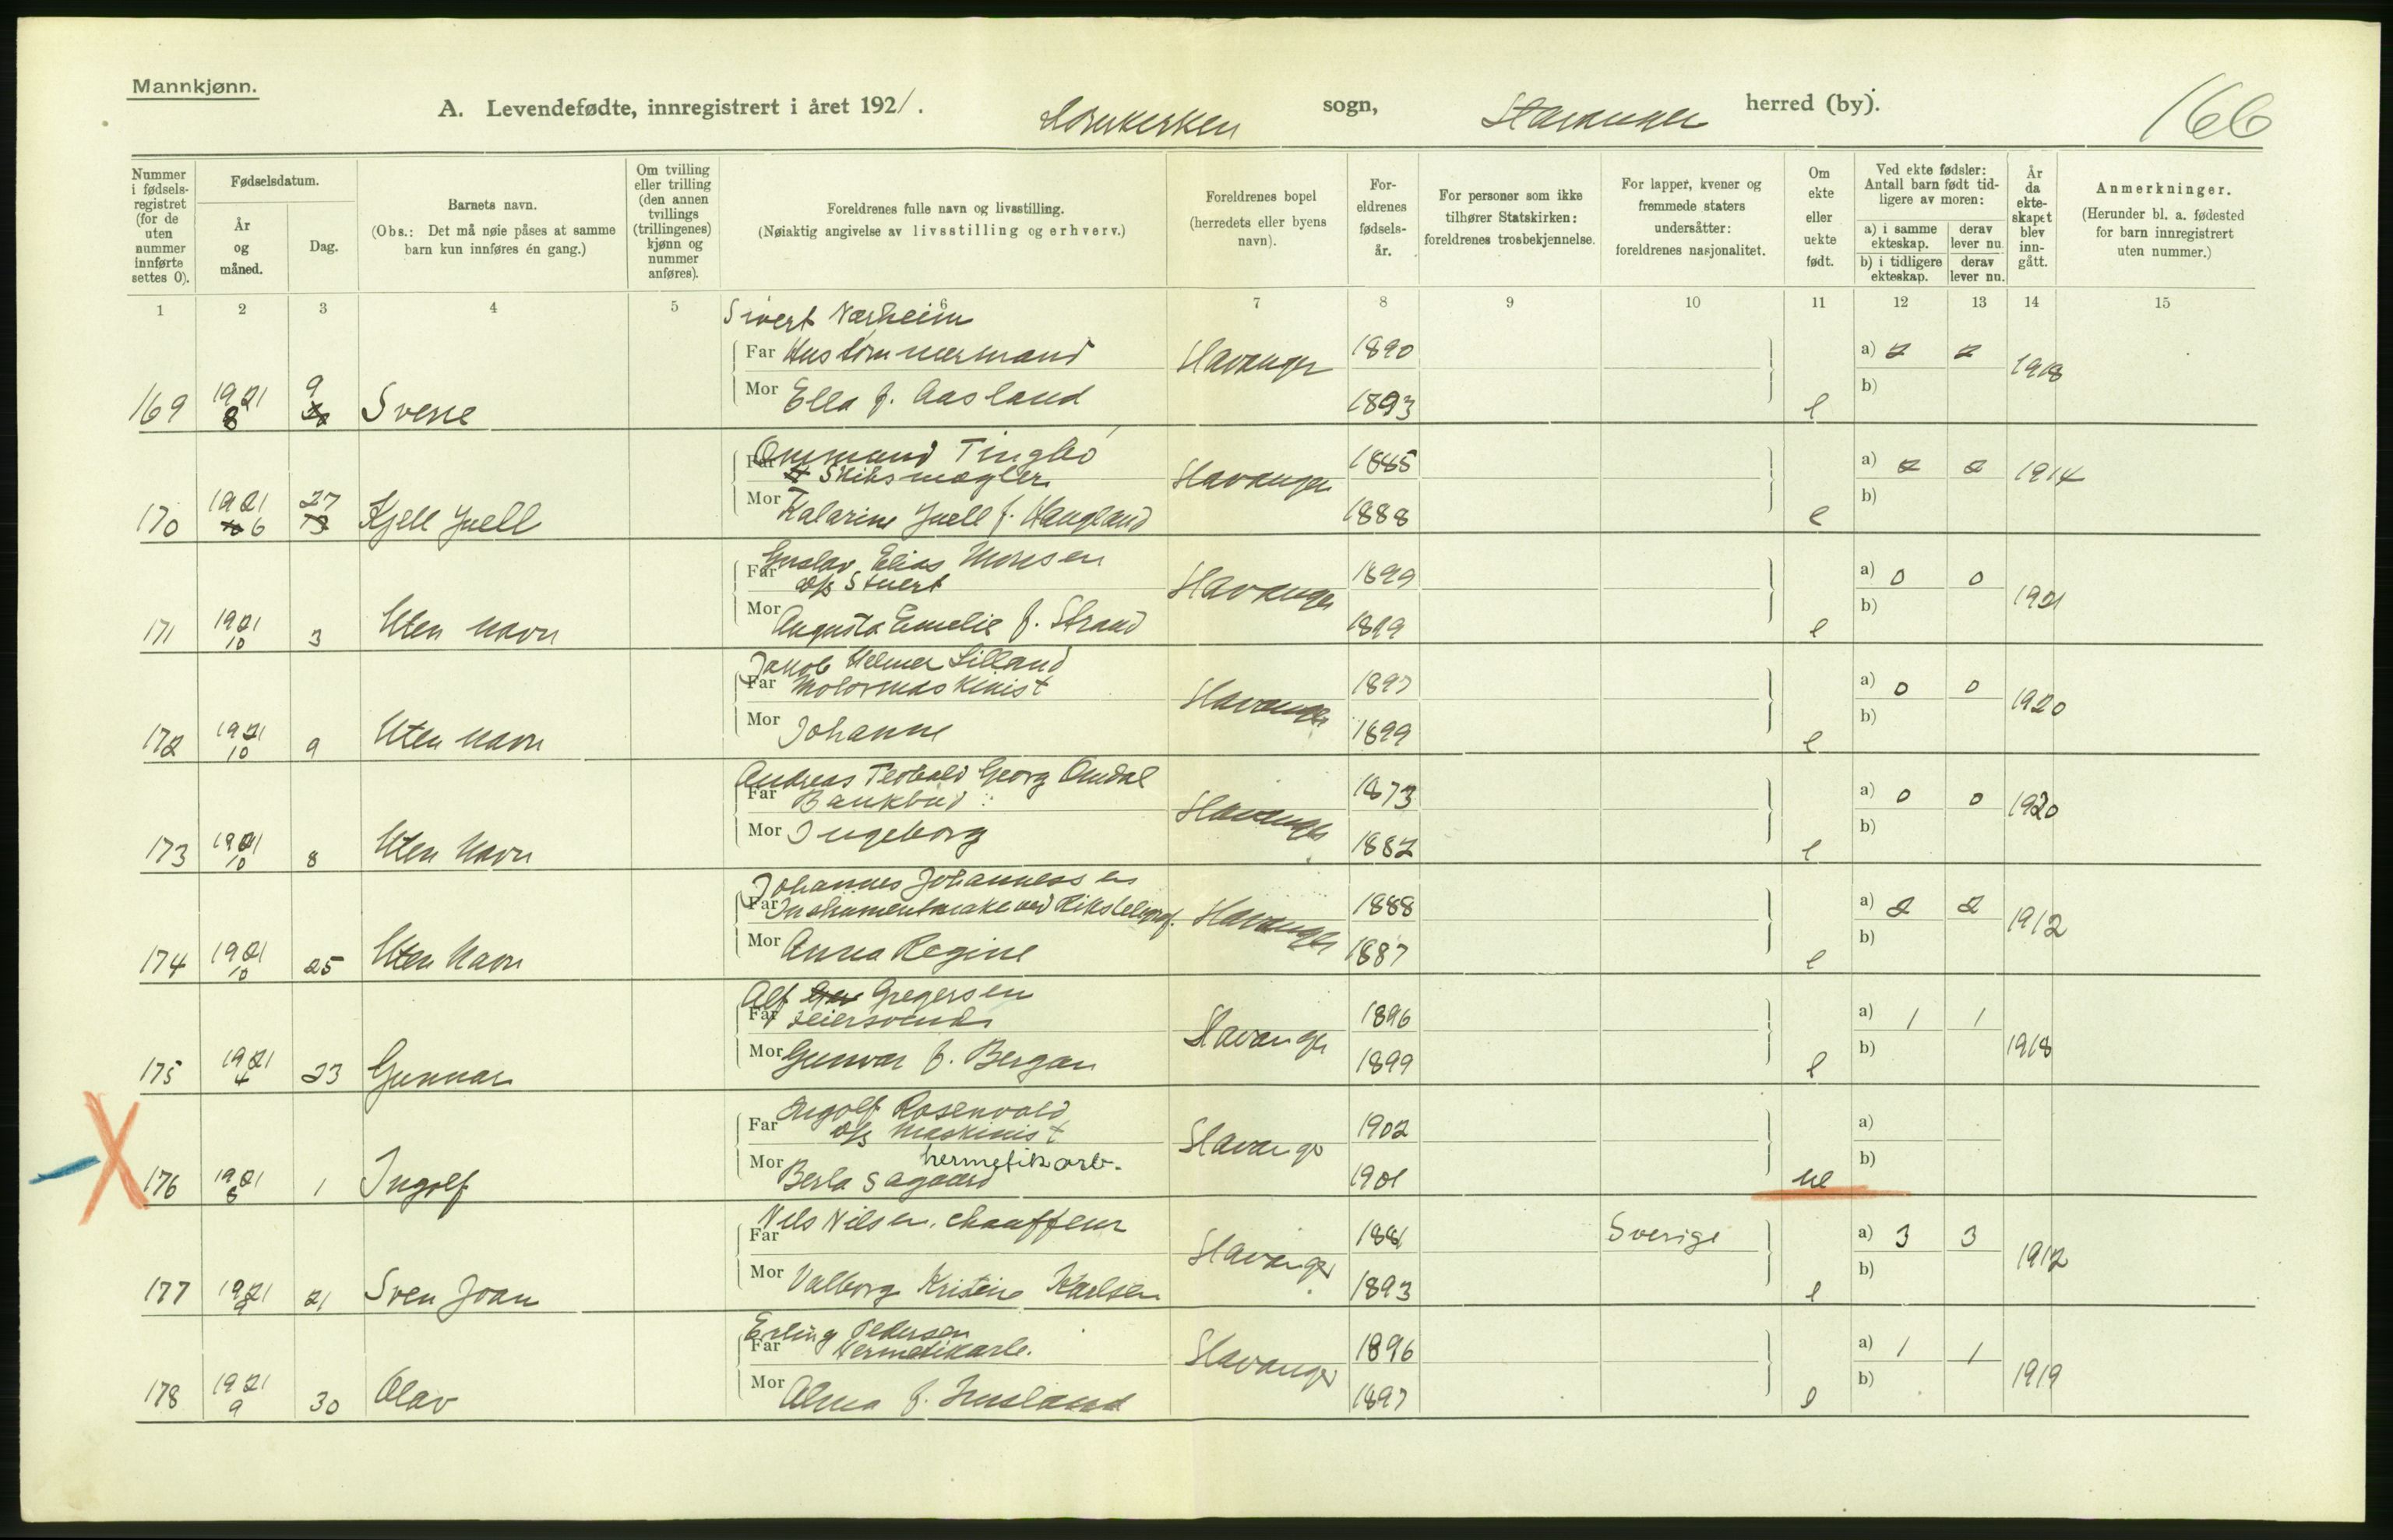 Mannkjønn.
A. Levendefødte, innregistrert i året 1921. Domkirken sogn, Stavanger herred (by).
166
Nummer i fødselsregistret (for de uten nummer innførte settes 0).
Fødselsdatum.
År og måned.
Dag.
Barnets navn.
(Obs.: Det må nøie påses at samme barn kun innføres én gang.)
Om tvilling eller trilling (den annen tvillings (trillingenes) kjønn og nummer anføres).
Foreldrenes fulle navn og livsstilling.
(Nøiaktig angivelse av livsstilling og erhverv.)
Foreldrenes bopel (herredets eller byens navn).
Foreldrenes fødselsår.
For personer som ikke tilhører Statskirken: foreldrenes trosbekjennelse.
For lapper, kvener og fremmede staters undersåtter: foreldrenes nasjonalitet.
Om ekte eller uekte født.
Ved ekte fødsler: Antall barn født tidligere av moren:
a) i samme ekteskap. derav lever nu.
b) i tidligere ekteskap. derav lever nu.
År da ekteskapet blev inngått.
Anmerkninger.
(Herunder bl. a. fødested for barn innregistrert uten nummer.)
1 2 3 4 5 6 7 8 9 10 11 12 13 14 15
Sivert Nærheim
Far Hustømmermand Stavanger 1890 a) 2 2 1918
169 1921 8 9 Sverre Mor Ella f. Aasland 1893 e b)
Ommund Tingbø
Far Skibsmægler Stavanger 1885 a) 2 2 1914
170 1921 6 27 Kjell Juell Mor Katarine Juell f. Haugland 1888 e b)
Gustav Elias Monsen
Far Stuert Stavanger 1899 a) 0 0 1921
171 1921 10 3 Uten navn Mor Augusta Emelie f. Strand 1899 e b)
Jakob Helmer Lilland
Far Motormaskinist Stavanger 1897 a) 0 0 1920
172 1921 10 9 Uten navn Mor Johanne 1899 e b)
Andreas Teobald Georg Omdal
Far Bankbud Stavanger 1873 a) 0 0 1920
173 1921 10 8 Uten Navn Mor Ingeborg 1882 e b)
Johannes Johannessen
Far Instrumentmaker ved Rikstelegraf. Stavanger 1888 a) 2 2 1912
174 1921 10 25 Uten Navn Mor Anna Regine 1887 e b)
Alf Gregersen
Far Feiersvend Stavanger 1896 a) 1 1 1918
175 1921 4 23 Gunnar Mor Gunvor f. Bergan 1899 e b)
Ingolf Rosenvold
Far maskinist Stavanger 1902 a)
hermetikarb.
176 1921 8 1 Ingolf Mor Berta Sagaard 1901 ue b)
Nils Nilsen, chauffeur
Far Stavanger 1881 Sverige a) 3 3 1912
177 1921 9 21 Sven Joan Mor Valborg Kristine Karlsen 1893 e b)
Erling Pedersen
Far Hermetikarb. Stavanger 1896 a) 1 1 1919
178 1921 9 30 Olav Mor Alma f. 1897 e b)